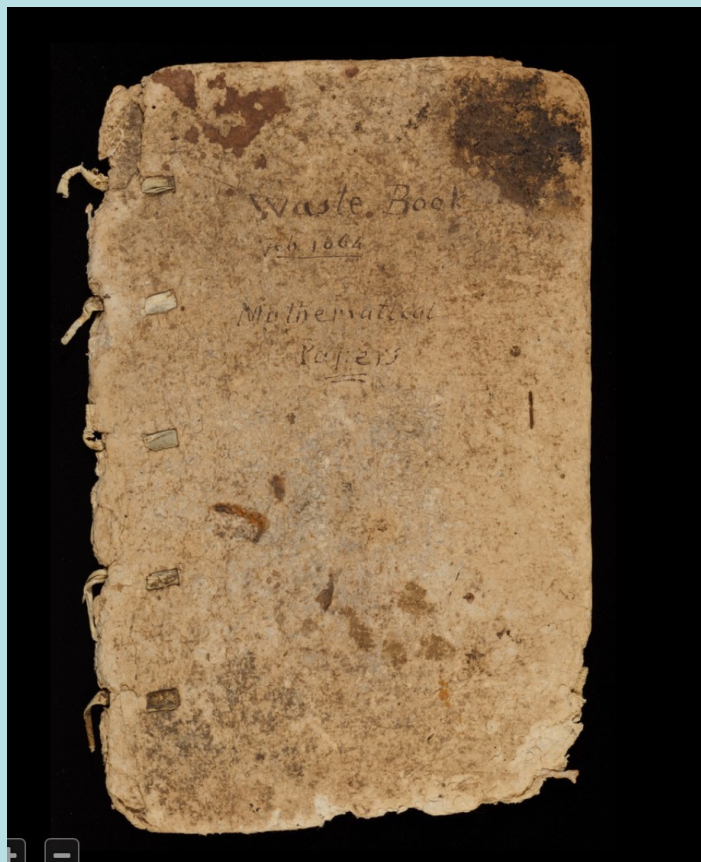 Waste Book
Feb 1664
Mathematical
Papers